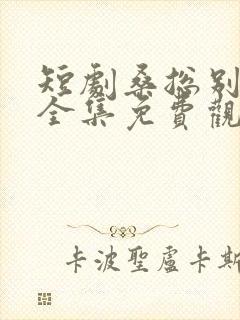 短劇桑總別
全集免費觀
卡波聖盧卡斯